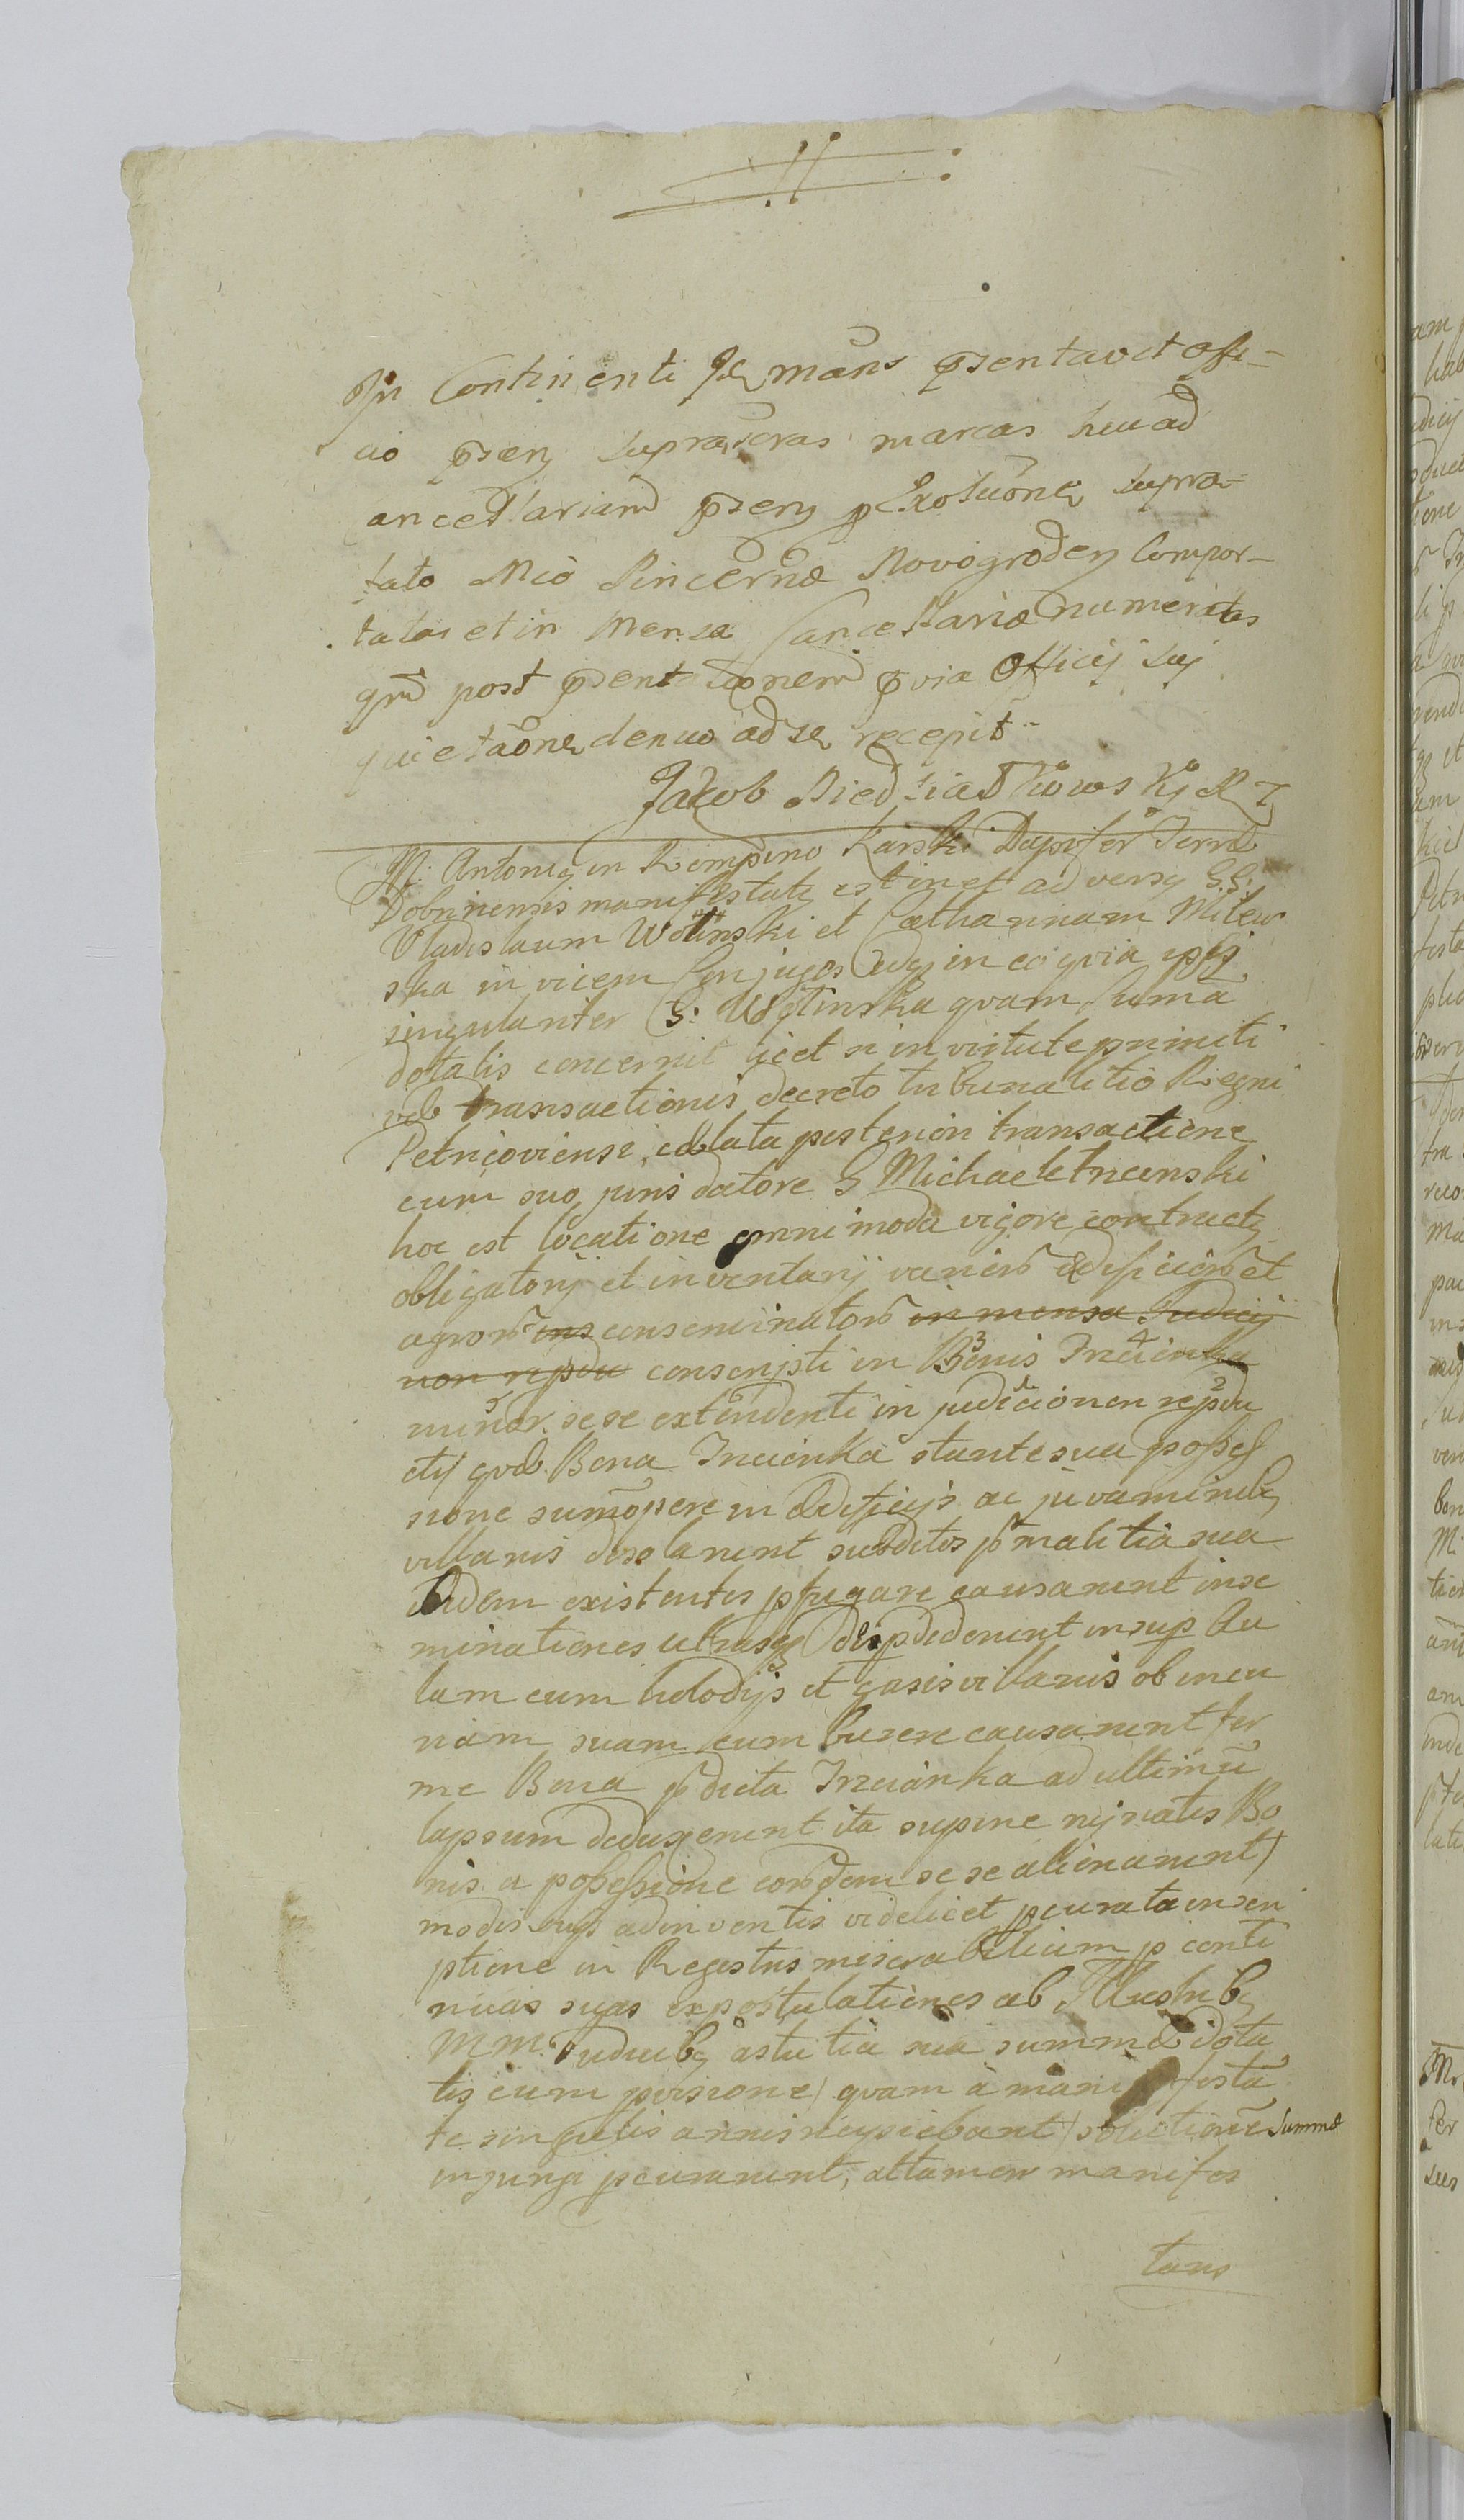 In Continenti Idē māns p̄sentavit offi-
cio p̄sens suprascrās marcas huc ad
Cancellariam p̄sen p̄ Exolūone supra-
fato Mco Pincernæ Novogroden Compor-
tatas et in mensa Cancellariæ numeratas
qm̄ post p̄sentationem p̄via officij sui
quietāone denuo ad se recepit
Jakob Niedziałkowskj
M: Antonius in Rempino Karski Dapifer Terræ
Dobrinensis manifestatus est in et adversus GG:
Vladislaum Wolinski et Catharinam Milew
ska invicem Conjuges in eo quia ipsi
singulanter G: Wolinska quam suma
dotalis concernit licet in virtute primiti
væ transactionis decreto tribunalitio Regni
Petricoviensi collata posteriori transactione
cum suo juris datore G Michaele Trcinski
hoc est locatione omnimoda vigore contractus
obligatorij et inventarij varior ædificior et
agror ins conseminator in mensa Judicij
non repdu conscripti in Bonis Trcienka
minor sese extendenti in judicionen repdu
cti quod Bona Trcienka stante sua posses
sione sumopere in ædificijs ac juvaminibus
villanis desolarent subditos p malitia sua
ibidem existentes pfugare causarent inse
minationes ultrasq disperdederint insup Au
lam cum helodijs et casis villanis ob incu
riam suam cumburere causarent fer
me Bona pdicta Trzcianka ad ultimū
lapsum deduxerint ita supine rujnatis Bo
nis a possessione eordem sese alienarent
modis suis adinventis videlicet pcurata inscri
ptione in Regestris miserabilium p conti
nuas suas expostulationes ab Illustribus
MM. Judicibus astutia sua summæ dota
lis cum provisione quam a manifesta
te singulis annis recipiebant solutione summæ
injungi pcurarent, attamen manifes
tans